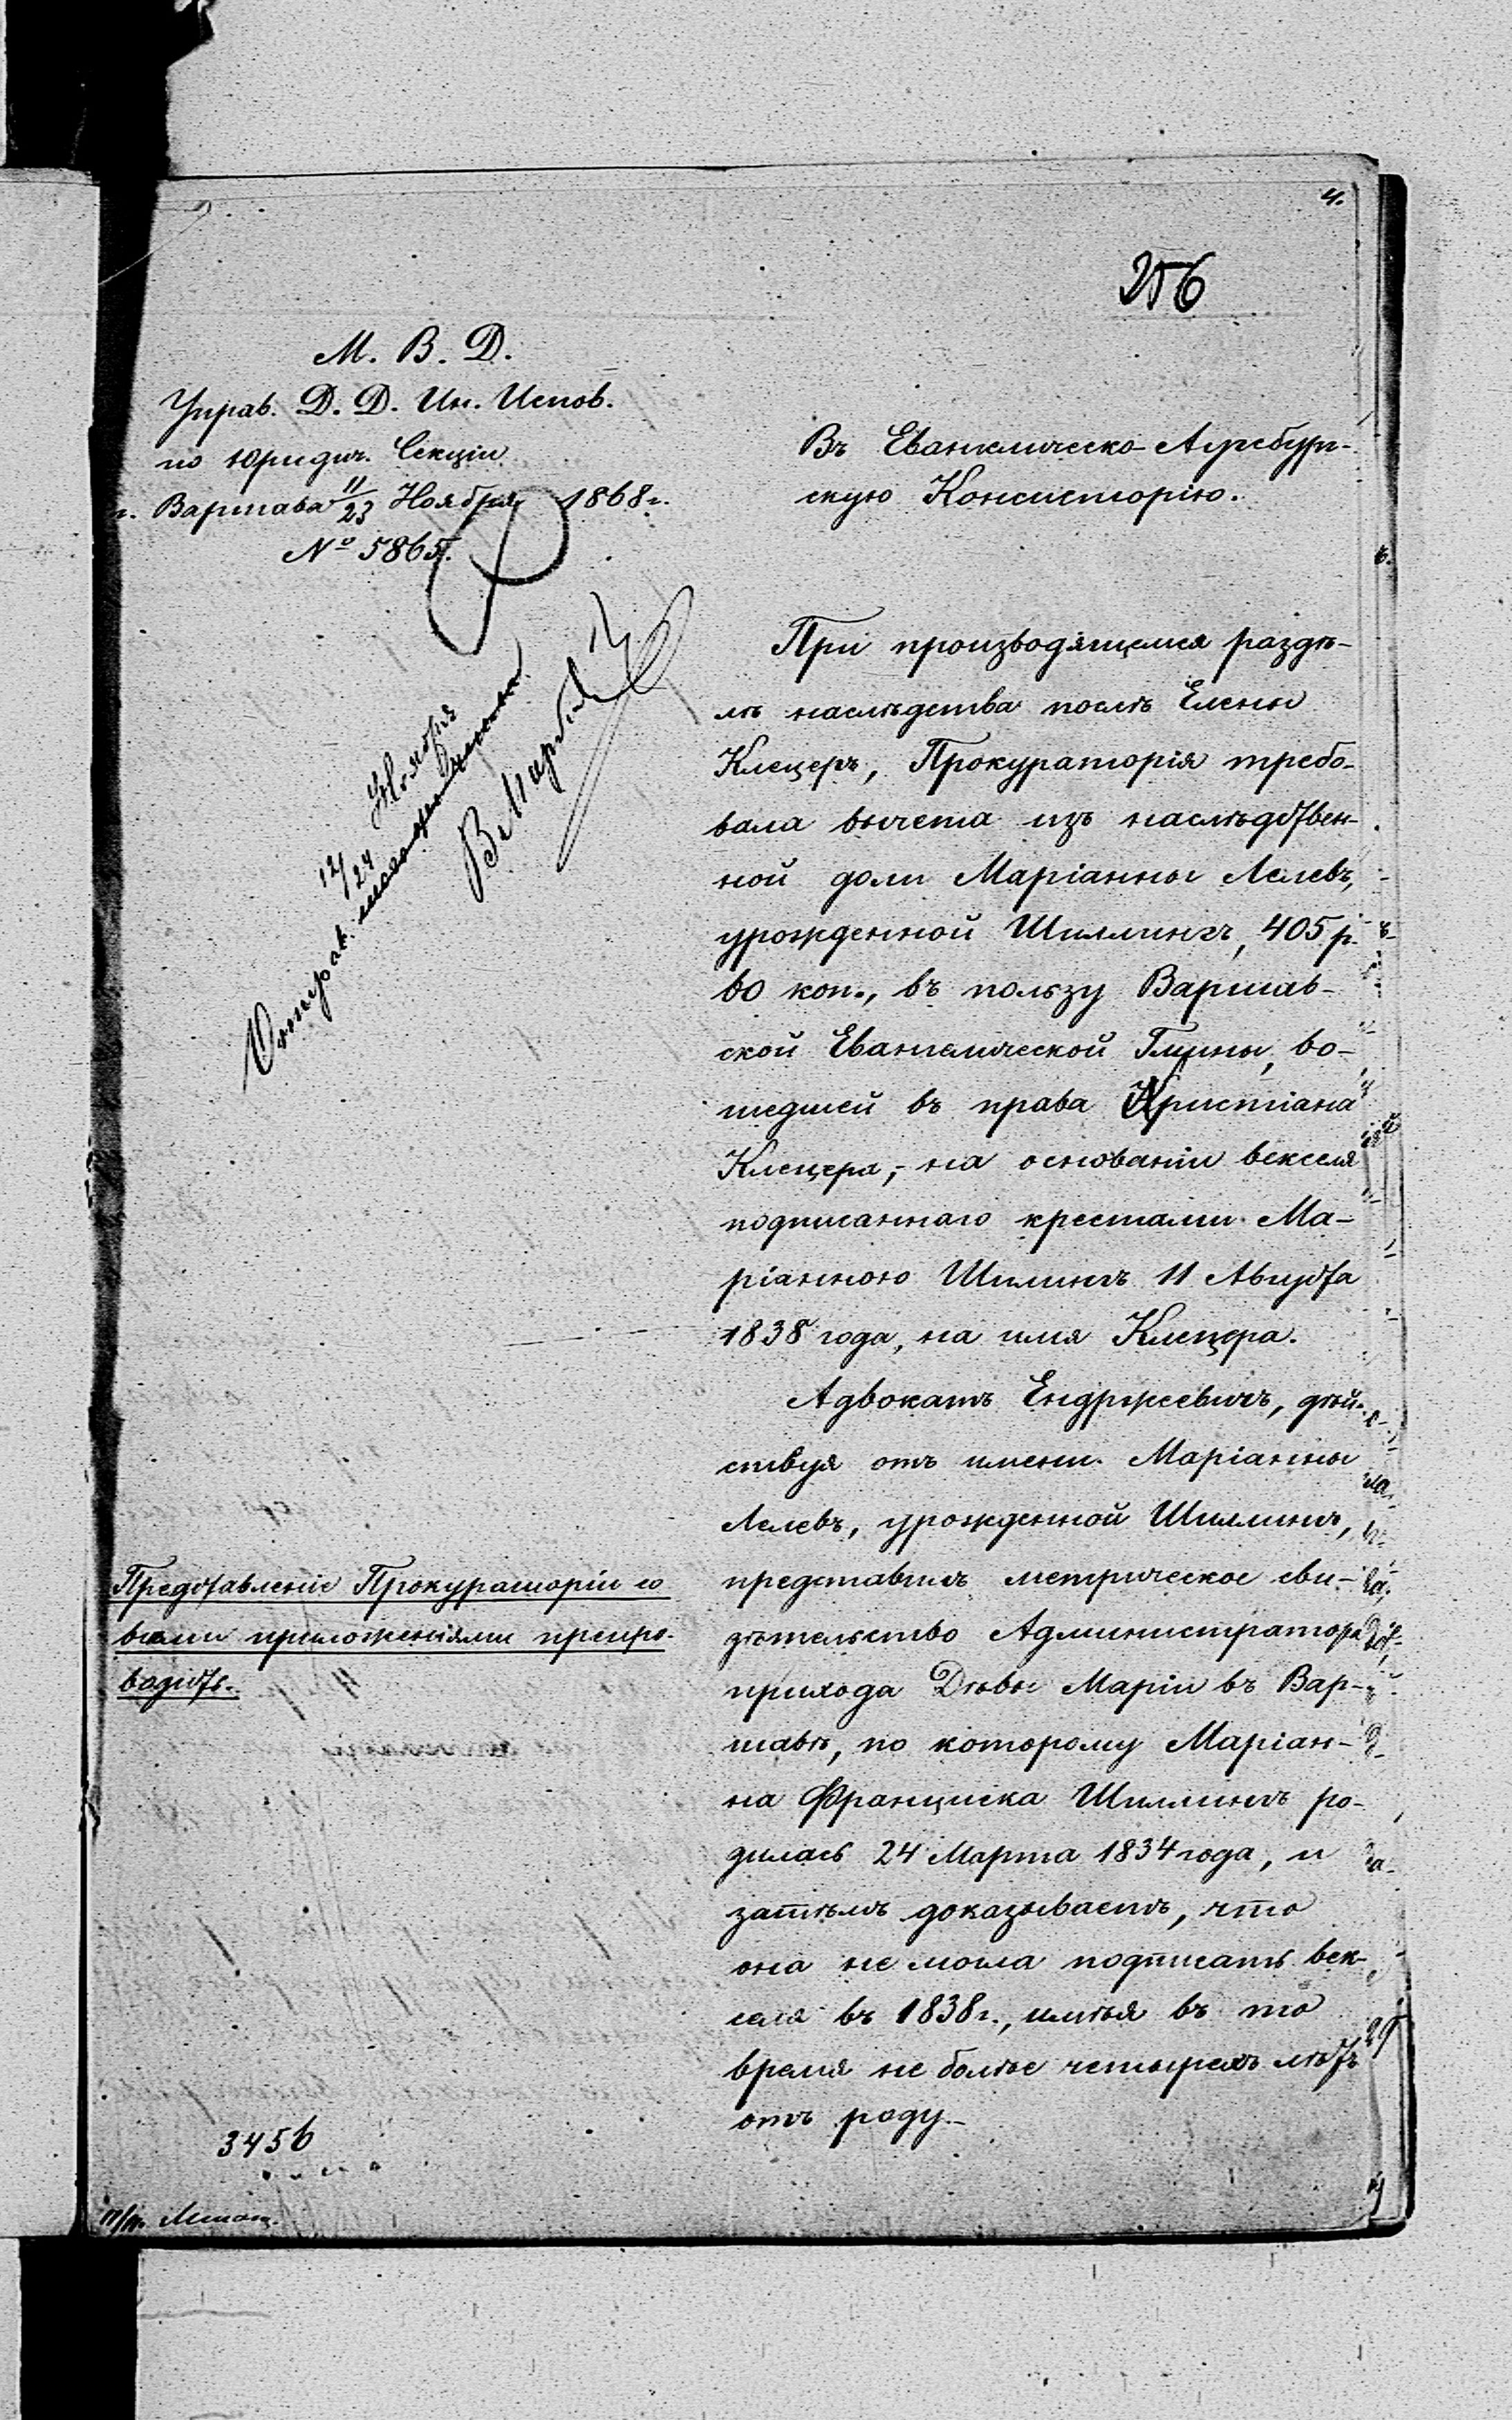 4.
256
М. В. Д.
Управ. Д. Д. Ин. Испов.
по Юридич. Секціи
г. Варшава 11/23 Ноября 1868 г.
№ 5865.
Въ Евангелическо-Аугсбург-
скую Консисторію.
12/24 Ноября
Отправ.
При производящемся раздѣ-
лѣ наслѣдства послѣ Елены
Клецеръ, Прокураторія требо-
вала вычета изъ наслѣдствен-
ной доли Маріанны Лелевъ,
урожденной Шиллингъ, 405 р.
60 коп., въ пользу Варшав-
ской Евангелической Гмины, во-
шедшей въ права Христіана
Клецера,- на основаніи векселя
подписаннаго крестами Ма-
ріанною Шилингъ 11 Августа
1838 года, на имя Клецера.
Адвокатъ Енджеевичъ, дѣй-
ствуя отъ имени Маріанны
Лелевъ, урожденной Шиллингъ,
представилъ метрическое сви-
дѣтельство Администратора
прихода Дѣвы Маріи въ Вар-
шавѣ, по которому Маріан-
на Франциска Шиллингъ ро-
дилась 24 Марта 1834 года, и
затѣмъ доказываетъ, что
она не могла подписать век-
селя въ 1838 г., имѣя въ то
время не болѣе четырехъ лѣтъ
отъ роду.-
Представленіе Прокураторіи со
всѣми приложеніями препро-
водить.
3456